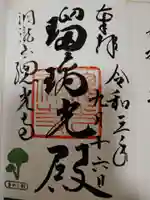 奉拝 令和三年
九月十六日
瑠璃光殿
洞瀧山 總光寺